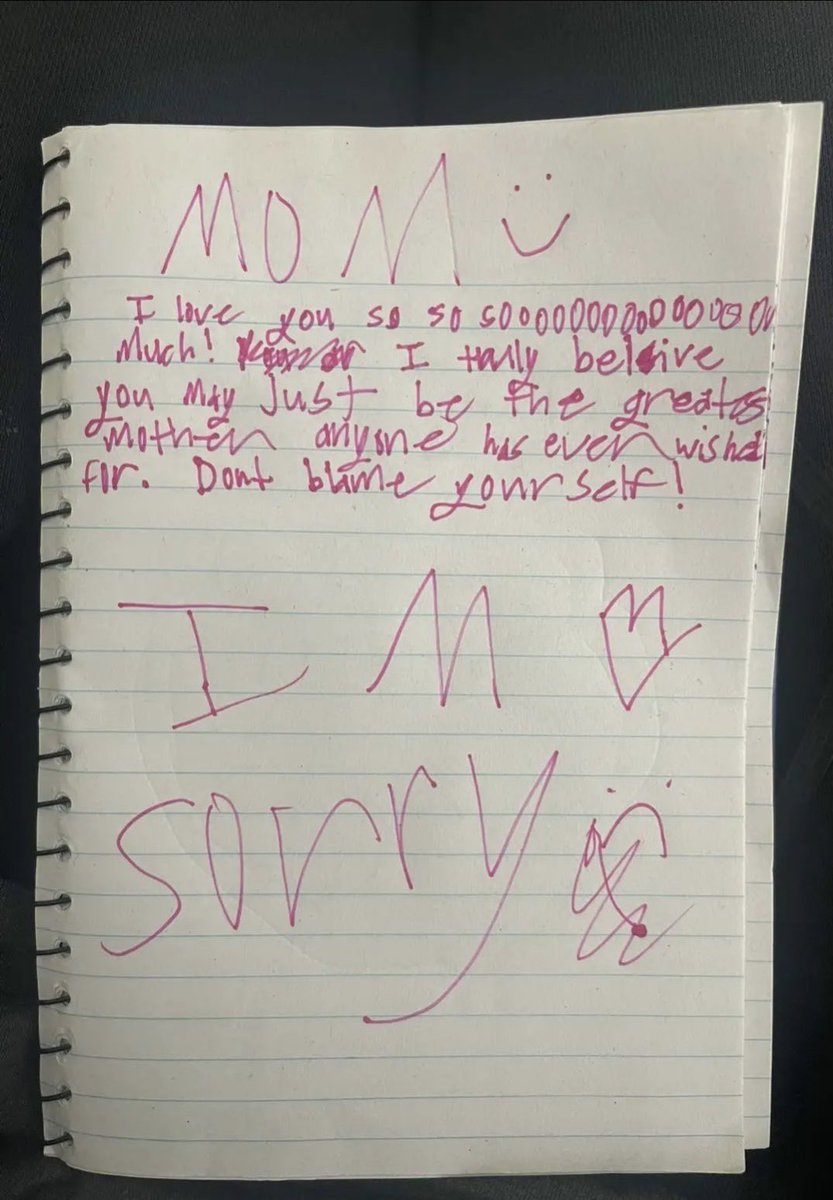 MOM
I love you so so soooooooooooooooo
Much! I truly beleive
you may just be the greatest
mother anyone has ever wished
for. Dont blame yourself!
I M
sorry